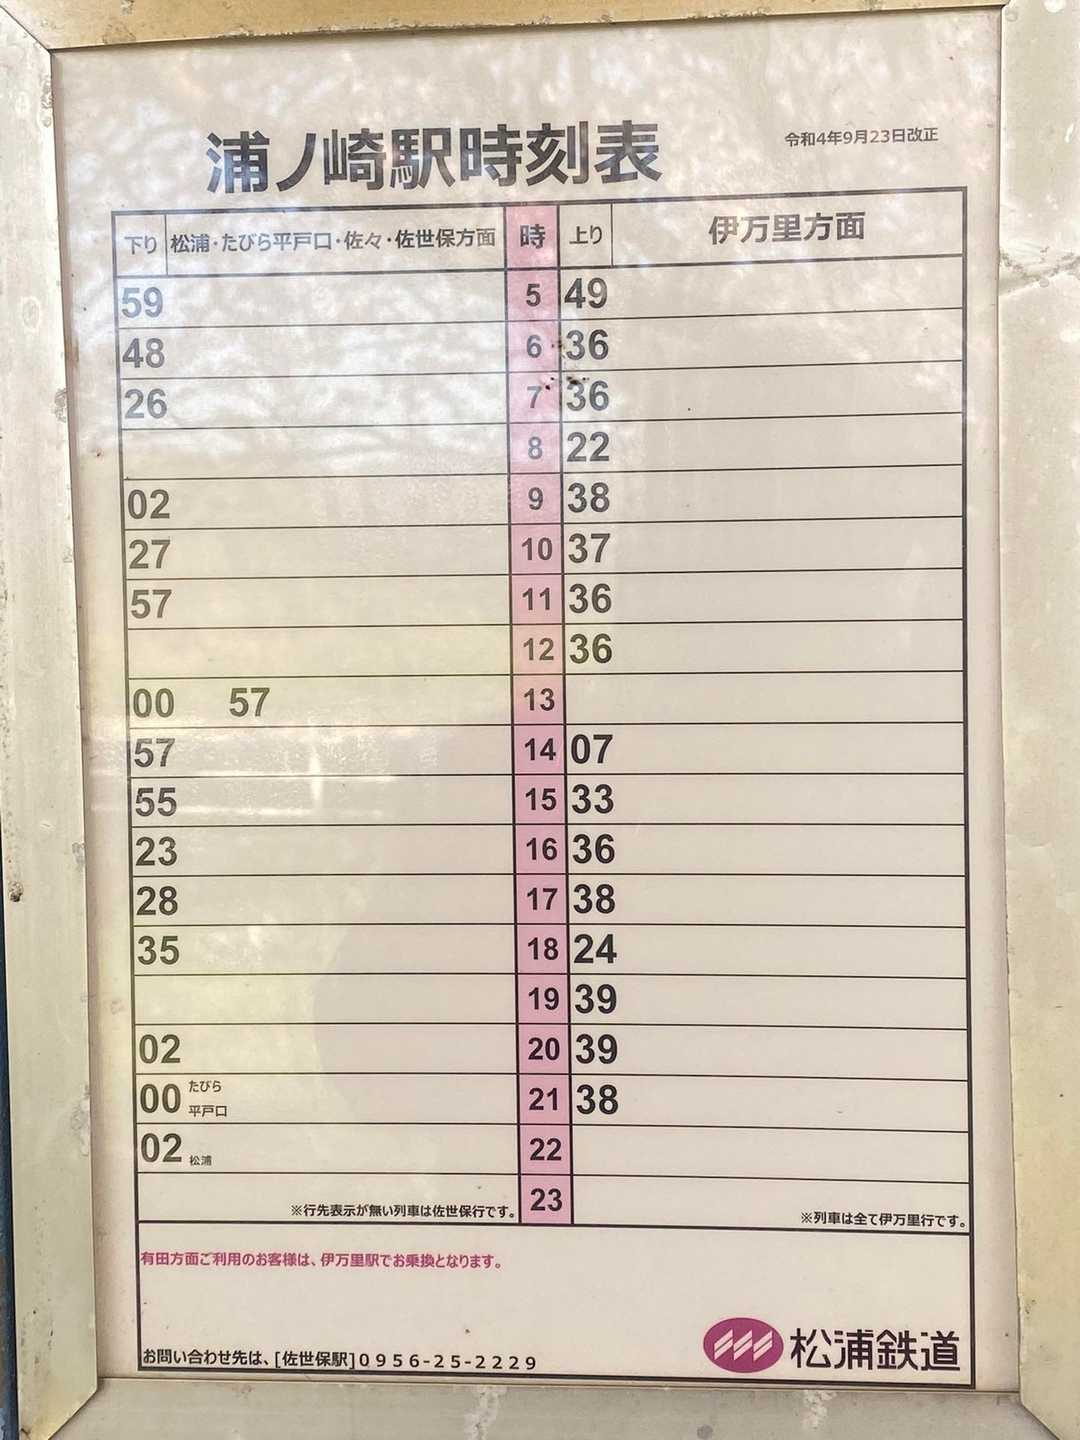 浦ノ崎駅時刻表
令和4年9月23日改正
下り 松浦・たびら平戸口・佐々・佐世保方面 時 上り 伊万里方面
59 5 49
48 6 36
26 7 36
8 22
02 9 38
27 10 37
57 11 36
12 36
00 57 13
57 14 07
55 15 33
23 16 36
28 17 38
35 18 24
19 39
02 20 39
00 たびら平戸口 21 38
02 松浦 22
※行先表示が無い列車は佐世保行です。 23 ※列車は全て伊万里行です。
有田方面ご利用のお客様は、伊万里駅でお乗換となります。
お問い合わせ先は、[佐世保駅]0956-25-2229
松浦鉄道